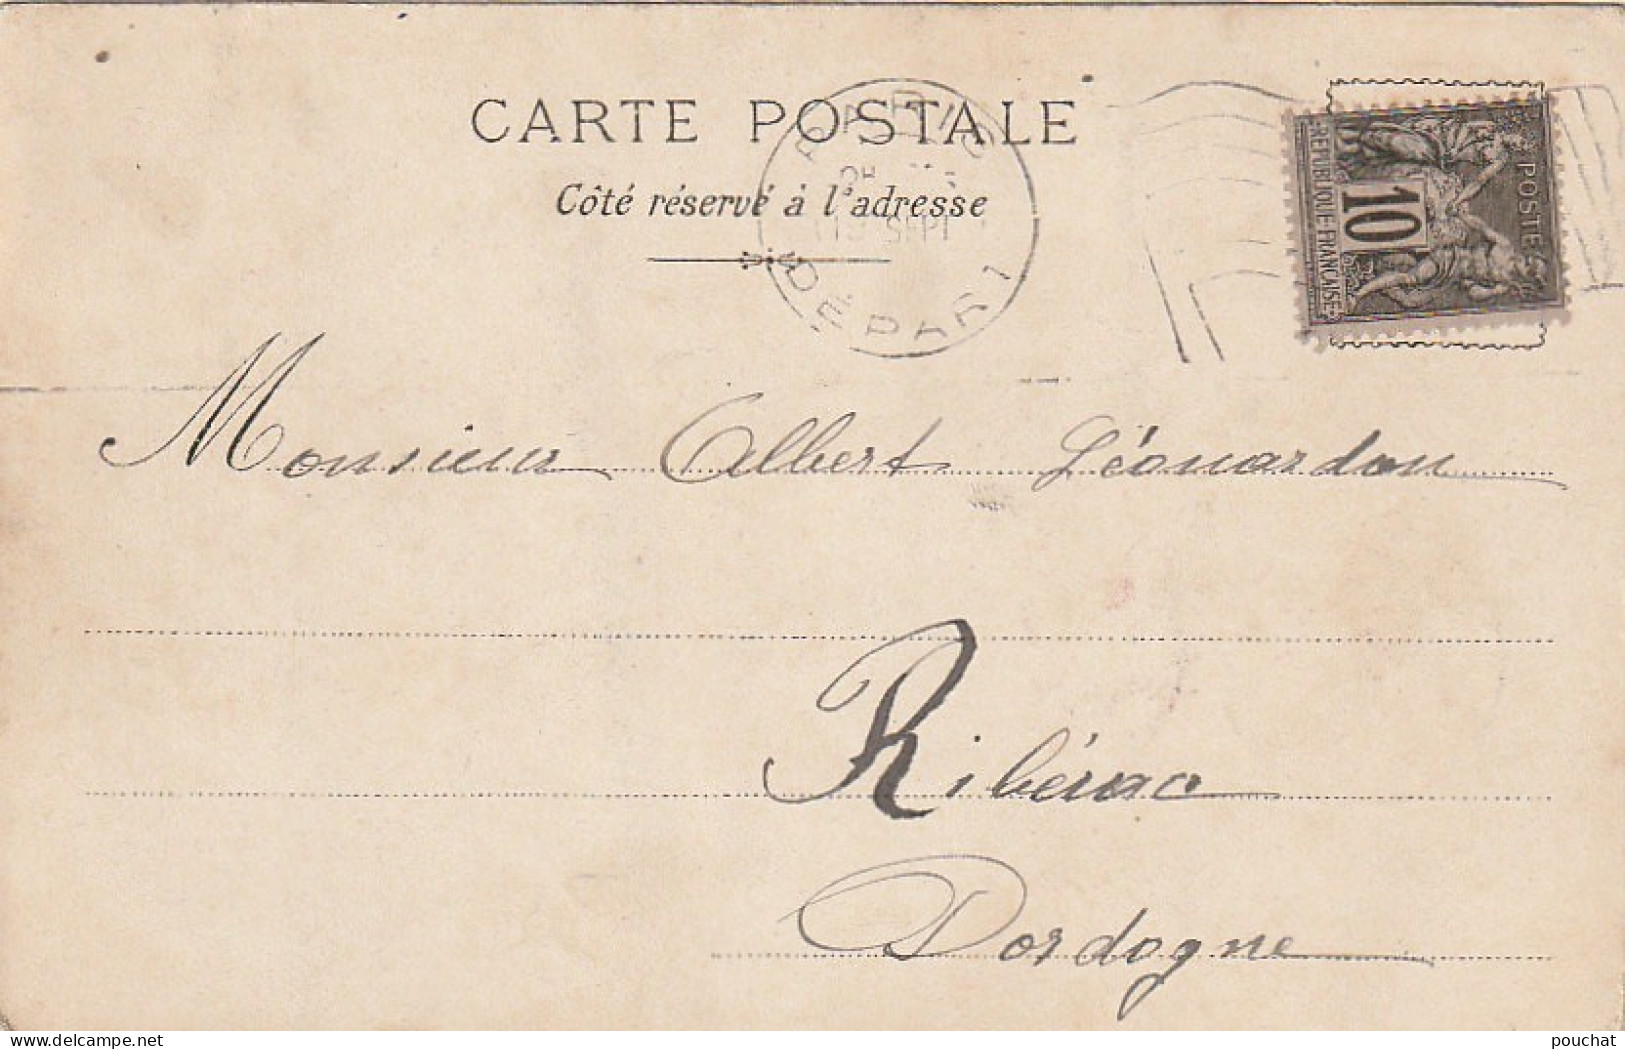 CARTE POSTALE
Côté réservé à l'adresse
PARIS
SEPT
DÉPART
POSTES
10
RÉPUBLIQUE FRANÇAISE
Monsieur Albert Léonardon
Ribérac
Dordogne
delcampe.net
pouchat